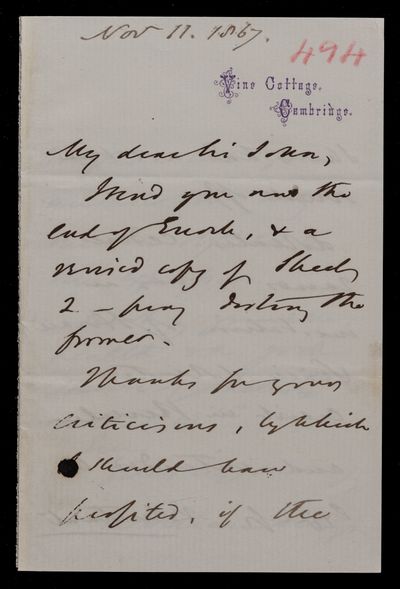 Nov 11. 1867.
494
Vine Cottage,
Cambridge.
My dear Sir John,
I send you now the
end of Enoch, & a
revised copy of Sheet
2 – pray destroy the
former.
Thanks for your
criticisms, by which
I should have
profited, if the